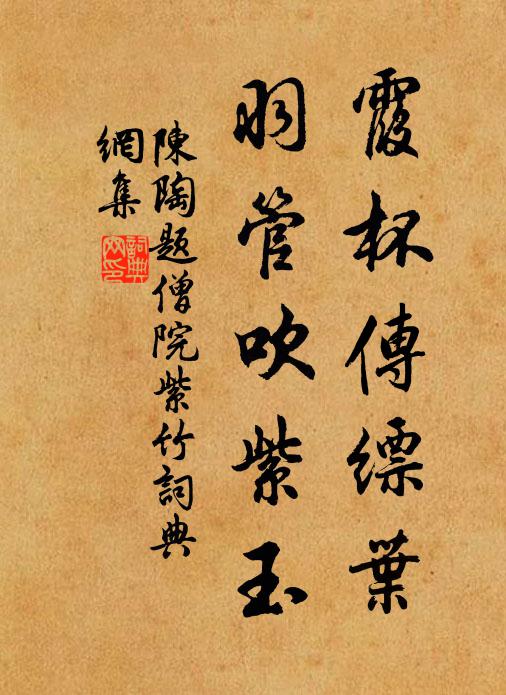 霞杯傳縹葉
羽管吹紫玉
陳陶題僧院紫竹詞典
網集
詞典网印